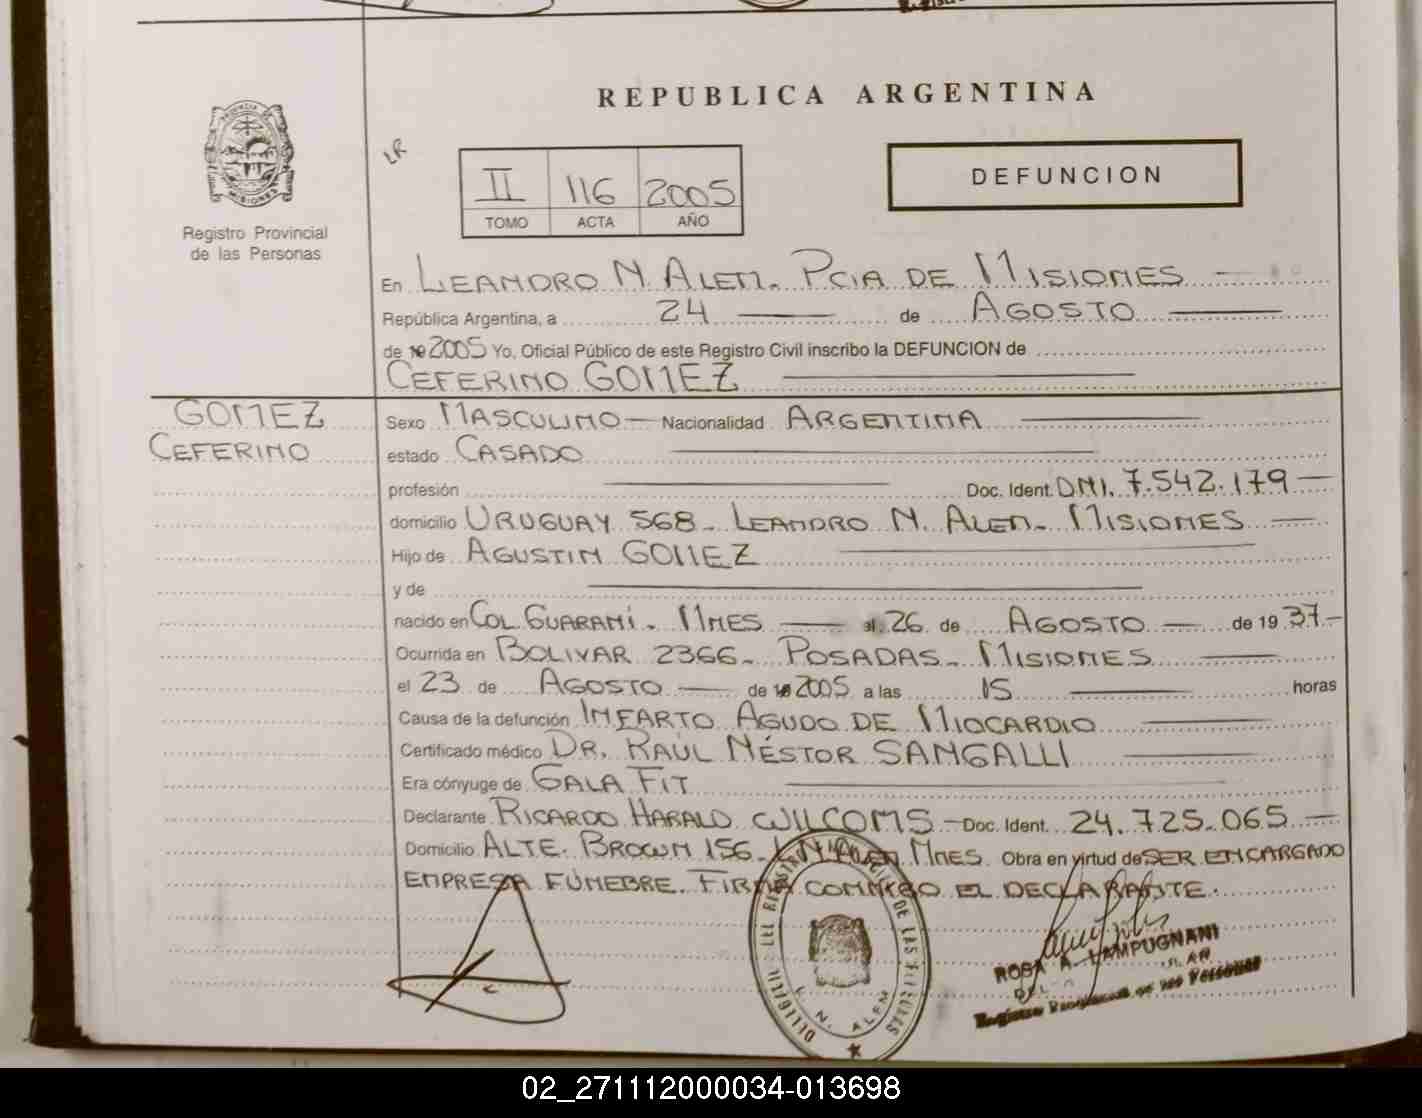 REPUBLICA ARGENTINA
LR
II 116 2005
TOMO ACTA AÑO
DEFUNCION
MISIONES
Registro Provincial
de las Personas
En LEANDRO N. ALEM. PCIA DE MISIONES
República Argentina, a 24 de AGOSTO
de 2005 Yo, Oficial Público de este Registro Civil inscribo la DEFUNCION de
CEFERINO GOMEZ
GOMEZ
CEFERINO
Sexo MASCULINO Nacionalidad ARGENTINA
estado CASADO
profesión Doc. Ident. DNI. 7.542.179
domicilio URUGUAY 568. LEANDRO N. ALEM. MISIONES
Hijo de AGUSTIN GOMEZ
y de
nacido en COL. GUARANÍ. MNES al 26 de AGOSTO de 19 37
Ocurrida en BOLIVAR 2366. POSADAS. MISIONES
el 23 de AGOSTO de 2005 a las 15 horas
Causa de la defunción INFARTO AGUDO DE MIOCARDIO
Certificado médico DR. RAÚL NÉSTOR SANGALLI
Era cónyuge de GALA FIT
Declarante RICARDO HARALD WILCOMS Doc. Ident. 24.725.065
Domicilio ALTE. BROWN 156. L.N. ALEM MNES. Obra en virtud de SER ENCARGADO
EMPRESA FÚNEBRE. FIRMA CONMIGO EL DECLARANTE.
DEL REGISTRO DE LAS PERSONAS
L. N. ALEM
ROSA A. LAMPUGNANI
Registro Provincial de las Personas
02_271112000034-013698